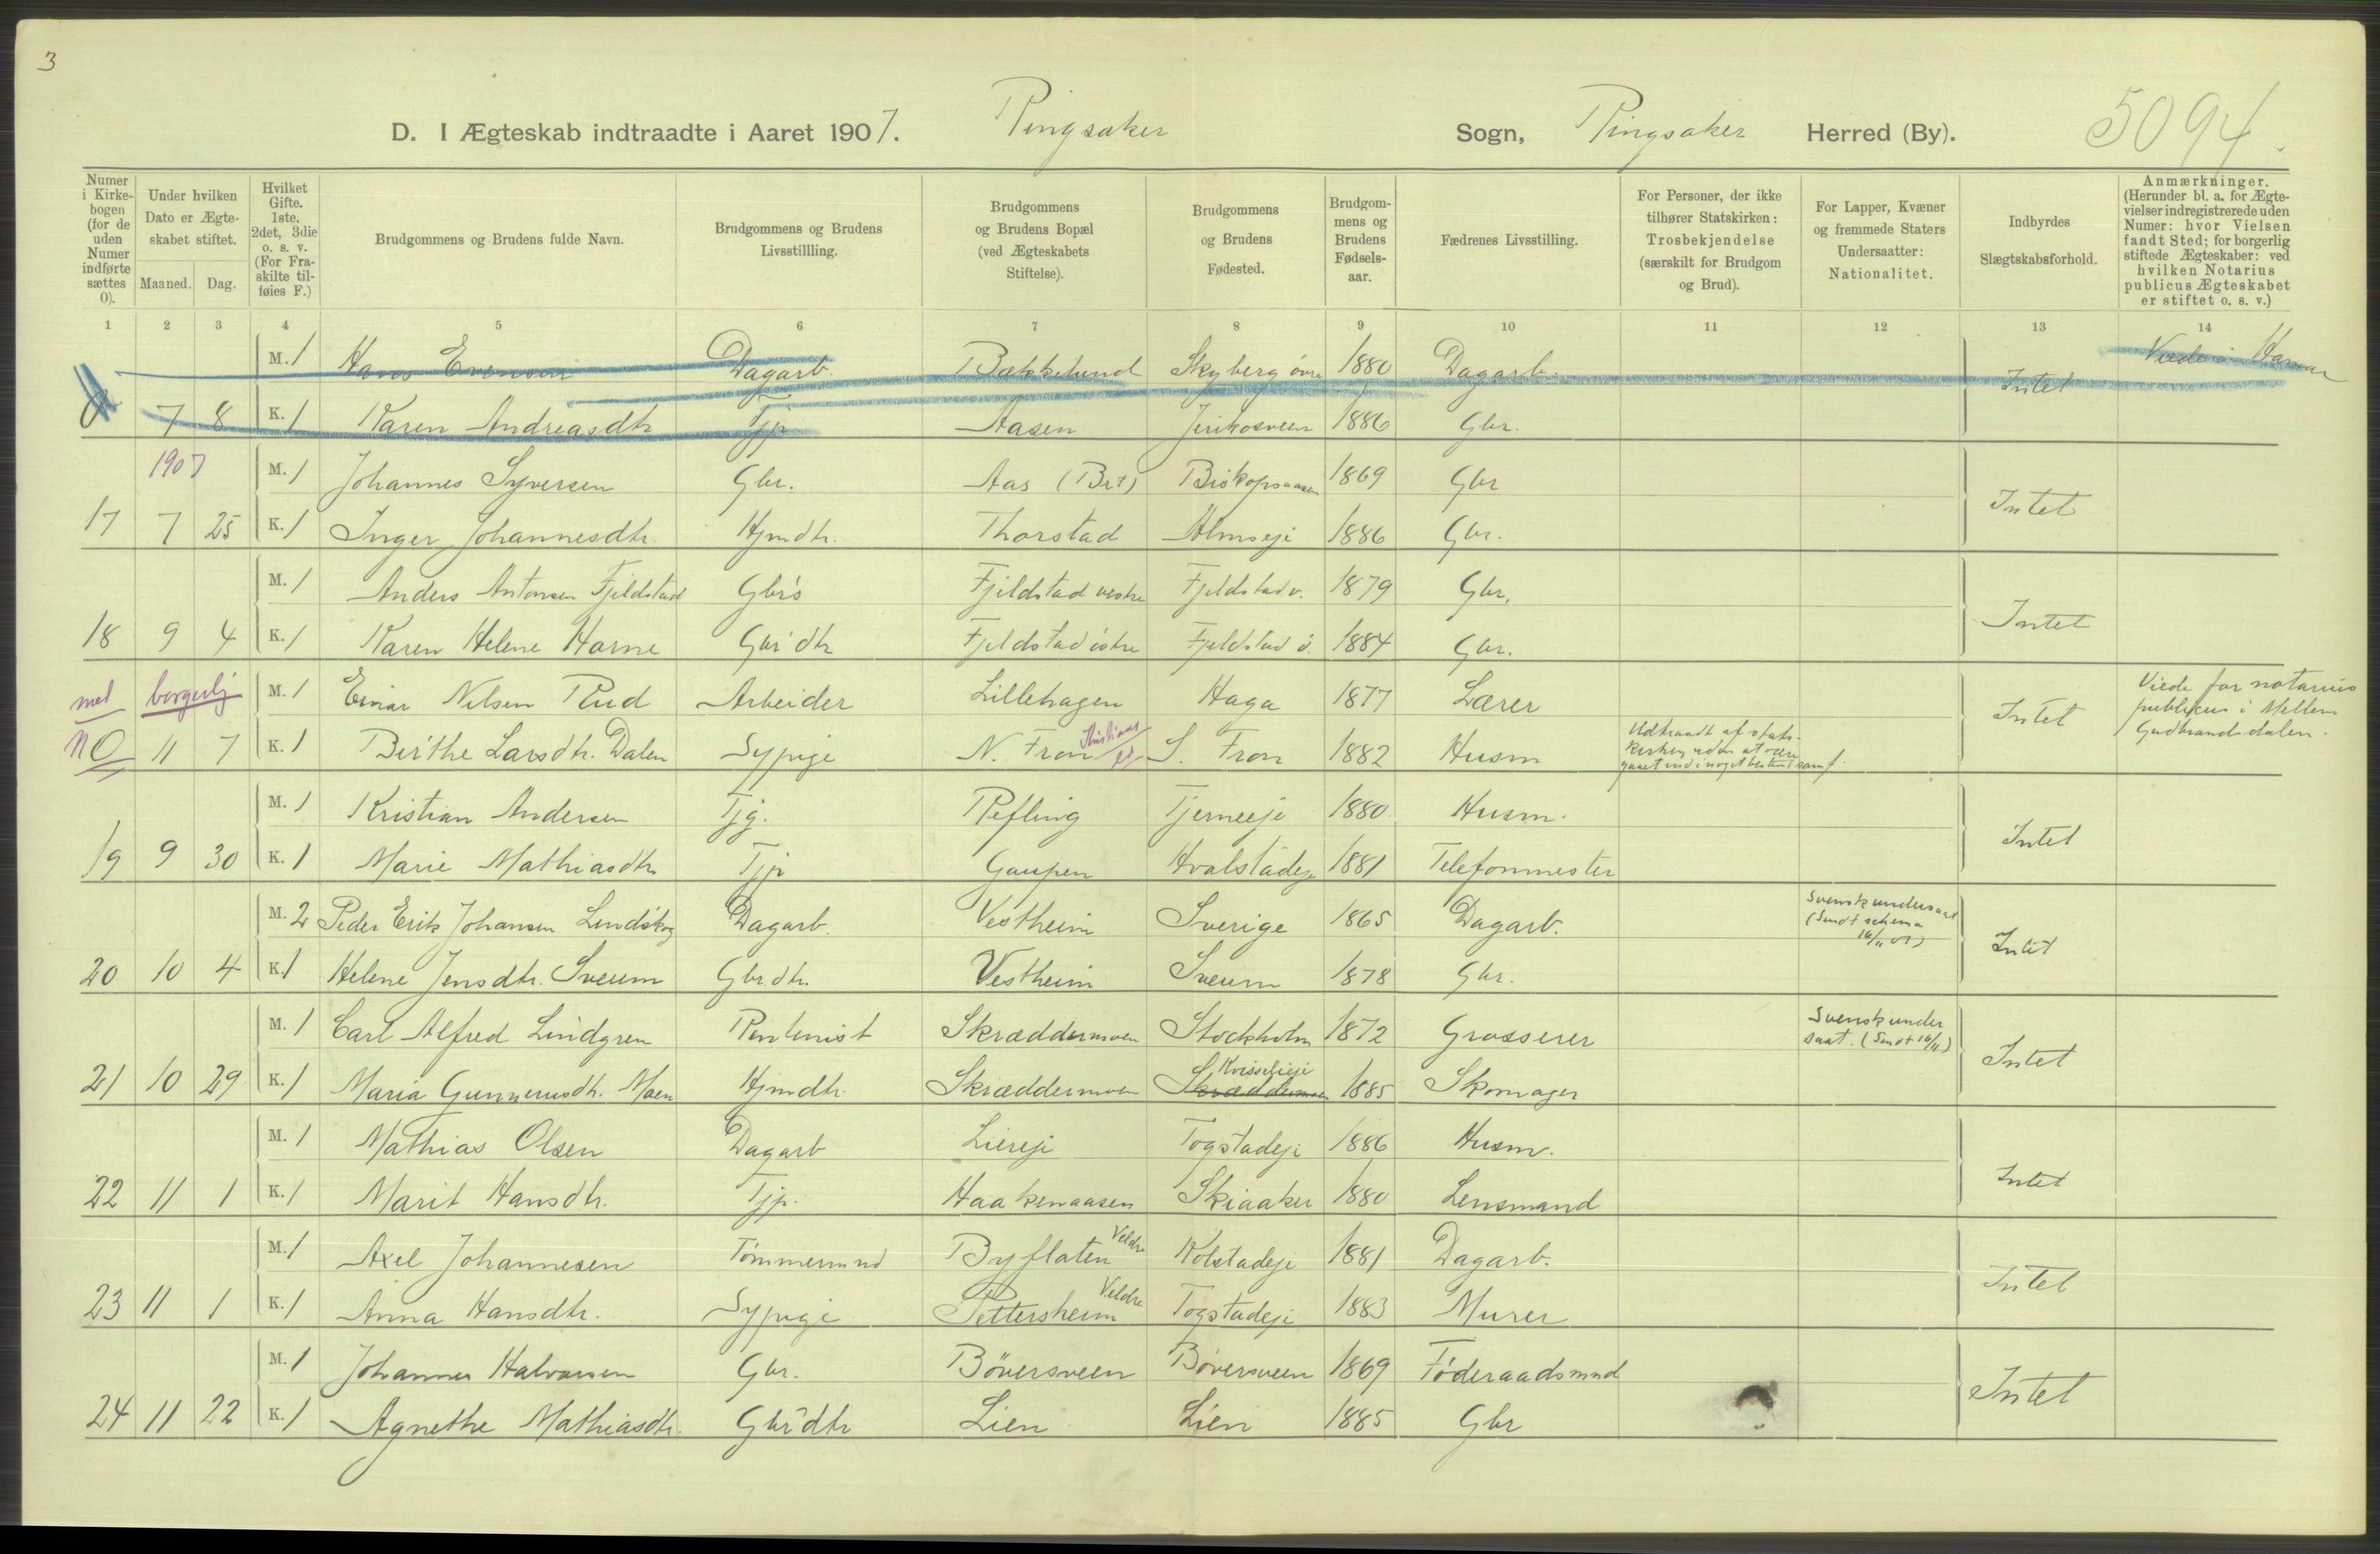 3
D. I Ægteskab indtraadte i Aaret 1907. Ringsaker Sogn, Ringsaker Herred (By). 5094.
Numer i Kirkebogen (for de uden Numer indførte sættes 0).
Under hvilken Dato er Ægteskabet stiftet.
Maaned. Dag.
Hvilket Gifte. 1ste, 2det, 3die o. s. v. (For Fraskilte tilføies F.)
Brudgommens og Brudens fulde Navn.
Brudgommens og Brudens Livsstillling.
Brudgommens og Brudens Bopæl (ved Ægteskabets Stiftelse).
Brudgommens og Brudens Fødested.
Brudgommens og Brudens Fødselsaar.
Fædrenes Livsstilling.
For Personer, der ikke tilhører Statskirken: Trosbekjendelse (særskilt for Brudgom og Brud).
For Lapper, Kvæner og fremmede Staters Undersaatter: Nationalitet.
Indbyrdes Slægtskabsforhold.
Anmærkninger. (Herunder bl. a. for Ægtevielser indregistrerede uden Numer: hvor Vielsen fandt Sted; for borgerlig stiftede Ægteskaber: ved hvilken Notarius publicus Ægteskabet er stiftet o. s. v.)
1 2 3 4 5 6 7 8 9 10 11 12 13 14
M. 1 Hans Evensen Dagarb. Bækkelund Skyberg øvre 1880 Dagarb. Intet Viede i Hamar
0 7 8 K. 1 Karen Andreasdtr Tjp Aasen Jerikosveen 1886 Gbr.
1907 M. 1 Johannes Syversen Gbr. Aas (Brt) Biskopsaasen 1869 Gbr Intet
17 7 25 K. 1 Inger Johannesdtr. Hjmdtr. Thorstad Almseje 1886 Gbr.
M. 1 Anders Antonsen Fjeldstad Gbrs Fjeldstad vestre Fjeldstad v. 1879 Gbr. Intet
18 9 4 K. 1 Karen Helene Horne Gbr dtr Fjeldstad østre Fjeldstad ø. 1884 Gbr.
med borgerlig M. 1 Einar Nilsen Rud Arbeider Lillehagen Haga 1877 Lærer Intet Viede for notarius publikus i Mellem Gudbrandsdalen.
No 11 7 K. 1 Birthe Larsdtr. Dalen Sypige N. Fron Kristians S. Fron 1882 Husm Udtraadt af statskirken uden at være gaaet ind i noget bestemt samf.
M. 1 Kristian Andersen Tjg. Refling Tjerneeje 1880 Husm. Intet
19 9 30 K. 1 Marie Mathiasdtr Tjp Gaupen Hvalstadeje 1881 Telefonmester
M. 2 Peder Erik Johansen Lindskog Dagarb. Vestheim Sverige 1865 Dagarb. Svensk undersaat (Sendt schema 16/11 07) Intet
20 10 4 K. 1 Helene Jensdtr. Sveum Gbr.dtr. Vestheim Sveum 1878 Gbr.
M. 1 Carl Alfred Lindgren Rentenist Skræddermoen Stockholm 1872 Grosserer Svensk undersaat. (Sendt 16/11) Intet
21 10 29 K. 1 Maria Gunnerusdtr. Moen Hjmdtr. Skræddermoen Skræddermoen Kvisselieje 1885 Skomager
M. 1 Mathias Olsen Dagarb Liereje Togstadeje 1886 Husm. Intet
22 11 1 K. 1 Marit Hansdtr. Tjp. Haakenaasen Skiaaker 1880 Lensmand
M. 1 Axel Johannesen Tømmermnd Byflaten Veldre Kolstadeje 1881 Dagarb. Intet
23 11 1 K. 1 Anna Hansdtr. Sypige Pettersheim Veldre Togstadeje 1883 Murer
M. 1 Johannes Halvorsen Gbr. Bøversveen Bøversveen 1869 Føderaadsmnd Intet
24 11 22 K. 1 Agnethe Mathiasdtr. Gbrdtr Lien Lien 1885 Gbr